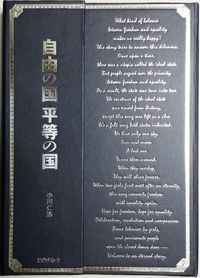 自由の国 平等の国
小川仁志
What kind of balance
between freedom and equality
makes us really happy?
This story tries to answer this dilemma.
Once upon a time,
there was a utopia called the ideal state.
But people argued over the priority
between freedom and equality.
As a result, the state was torn into two.
The existence of the ideal state
was erased from history,
except this song was left as a clue.
It's a folk song both states inherited:
We have only one sky.
Sun and moon
Turns them around.
When they overlap,
They will shine forever.
When two girls first meet after an eternity,
this story connects freedom
with equality again.
Hope for freedom, hope for equality
Deliberation, revolution and compassion
Brave behavior by girls,
and passionate people
open the closed heavy door.
Welcome to an eternal story.